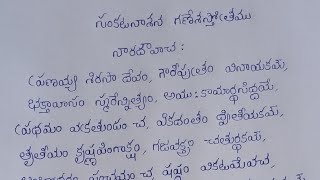 సంకటనాశన గణేశస్తోత్రము
నారదౌవాచ
ప్రణమ్య శిరసా దేవం, గౌరీపుత్రం వినాయకమ్,
భక్తావాసం స్మరేన్నిత్యం, ఆయు:కామార్థసిద్ధయే,
ప్రథమం వక్రతుండం చ, ఏకదంతం ద్వితీయకమ్,
తృతీయం కృష్ణపింగాక్షం, గజవక్త్రం చతుర్థకమ్,
పంచమం చ, షష్ఠం వికటమేవచ,